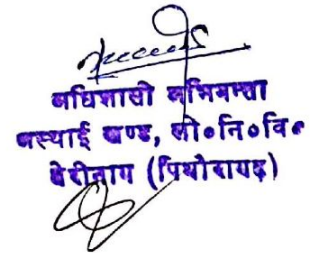 अधिशासी अभियन्ता
अस्थाई खण्ड, लो०नि०वि०
बेरीनाग (पिथोरागढ़)